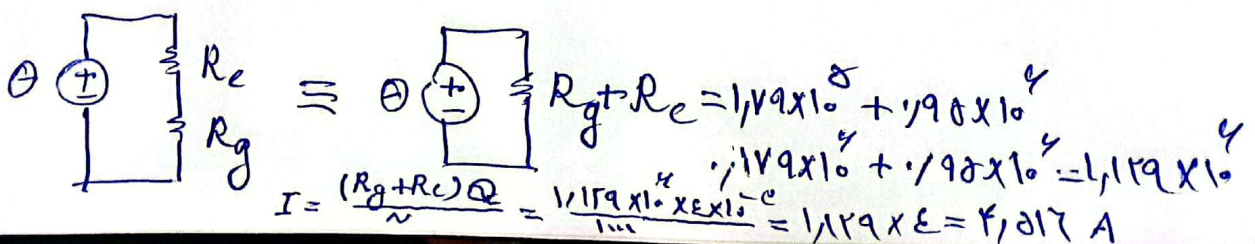 θ + R_c ≡ θ + R_g+R_c = ۱,۷۹×۱۰^۵ + ۰,۹۵×۱۰^۶
R_g ۰,۱۷۹×۱۰^۶ + ۰,۹۵×۱۰^۶ = ۱,۱۲۹×۱۰^۶
I = (R_g+R_c)Q / ~ = ۱,۱۲۹×۱۰^۶×٤×۱۰^-۳ / ۱۰۰۰ = ۱,۱۲۹×٤ = ۴,۵۱۶ A